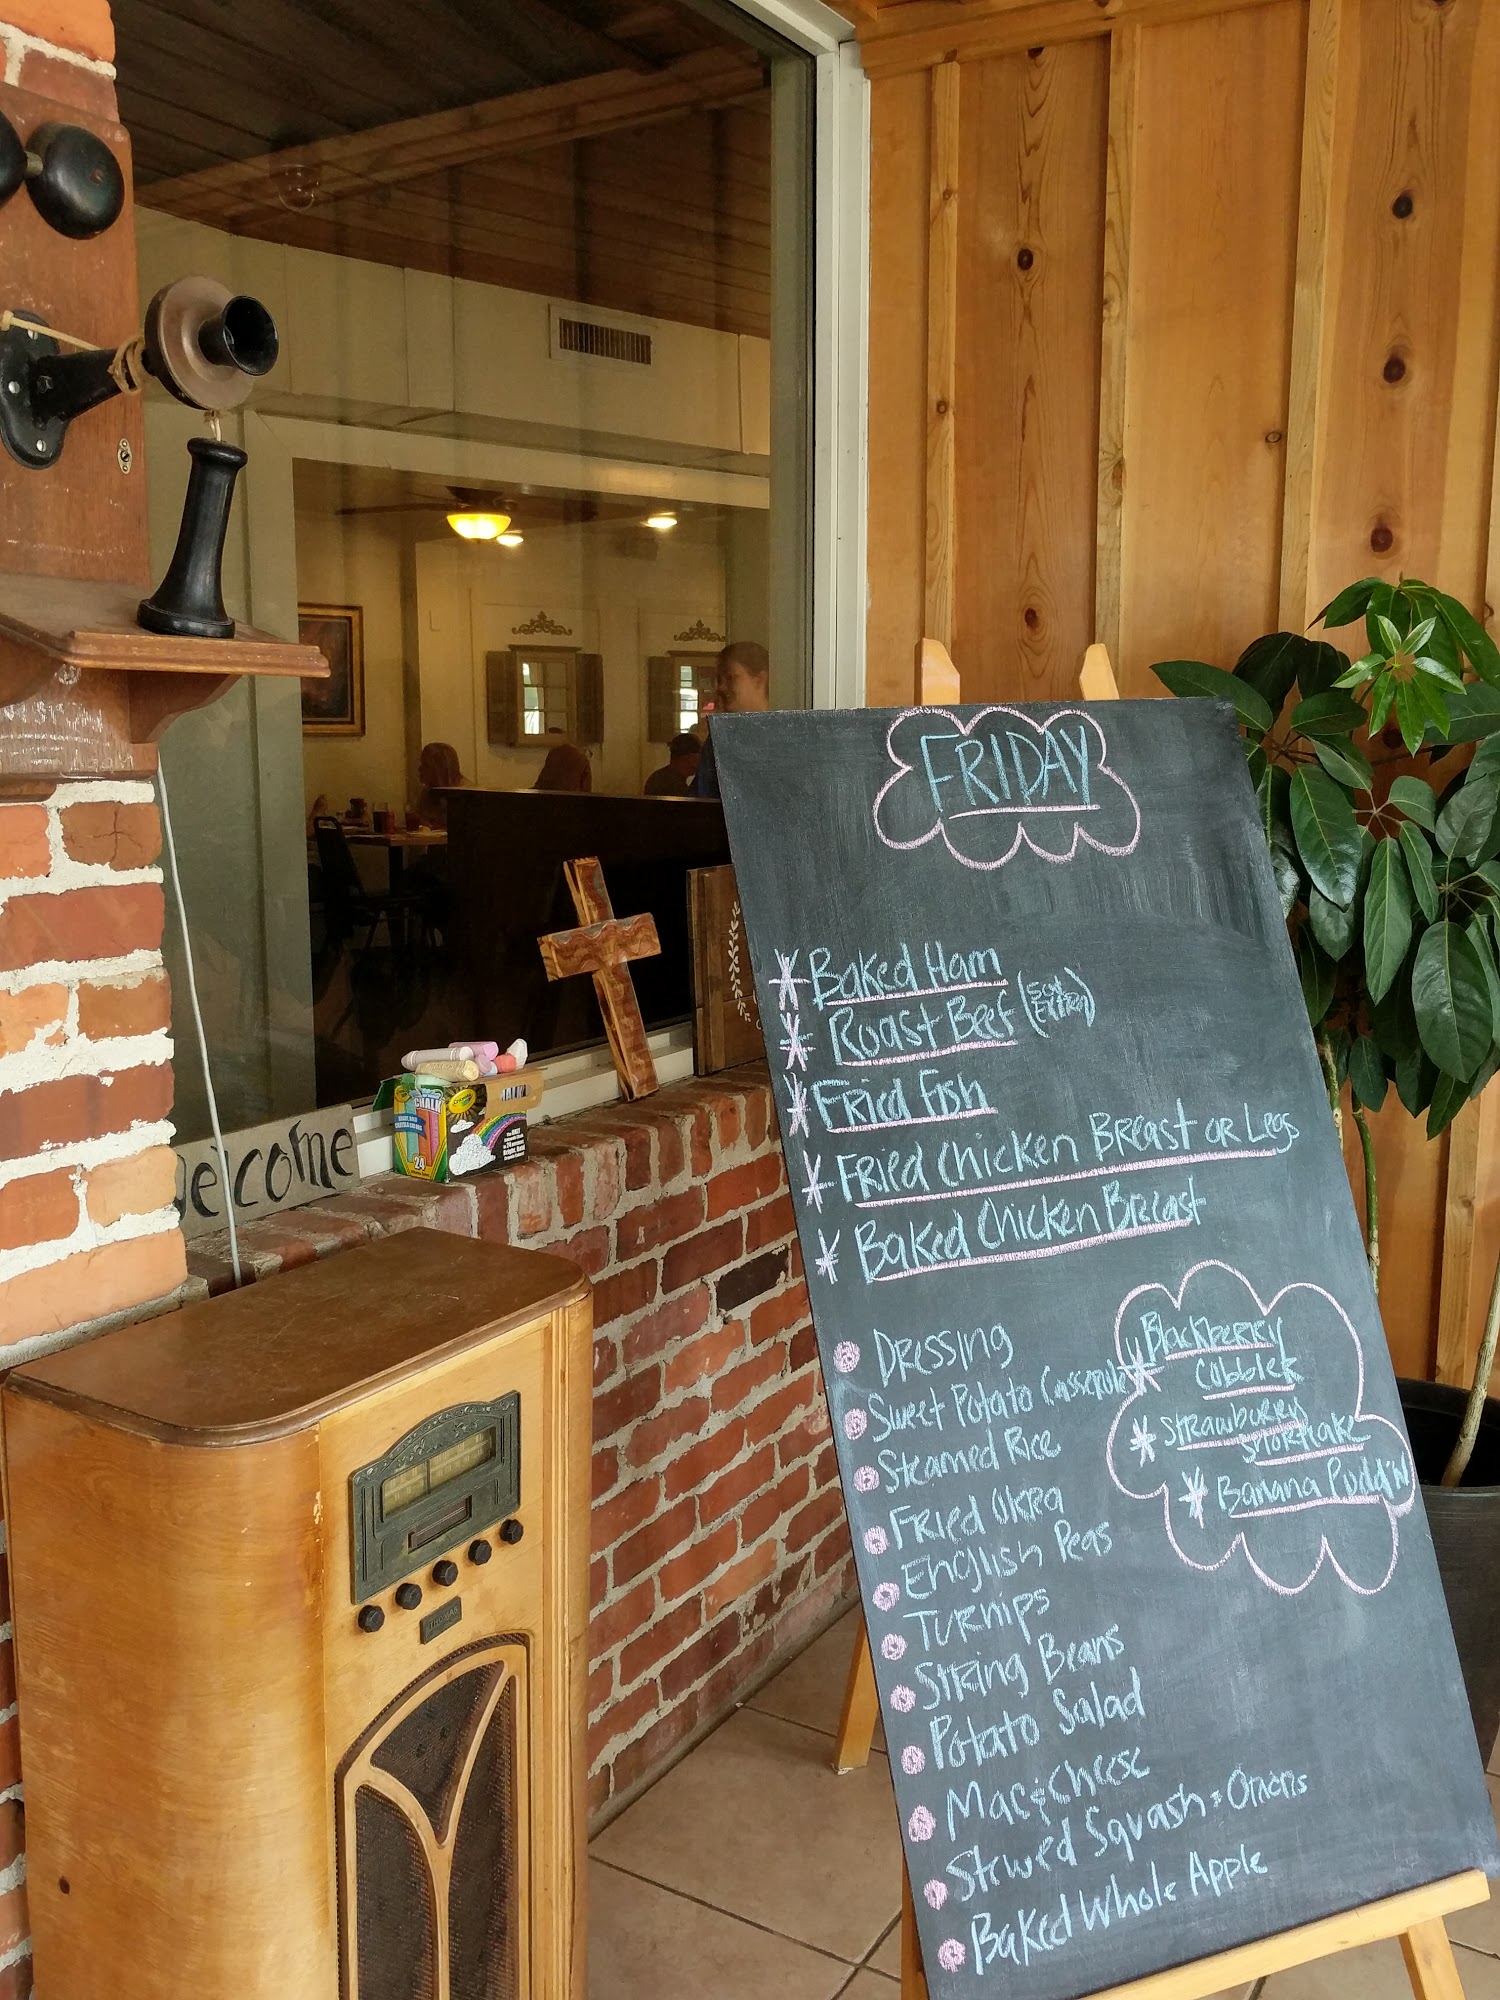 FRIDAY
* Baked Ham
* Roast Beef (50¢
EXTRA)
* Fried Fish
* Fried Chicken Breast or Legs
* Baked Chicken Breast
Dressing
Sweet Potato Casserole
Steamed Rice
Fried Okra
English Peas
Turnips
String Beans
Potato Salad
Mac & Cheese
Stewed Squash & Onions
Baked Whole Apple
* Blackberry
Cobbler
* Strawberry
Shortcake
* Banana Pudd'n
welcome
Crayola
CHALK
24
THOMAS